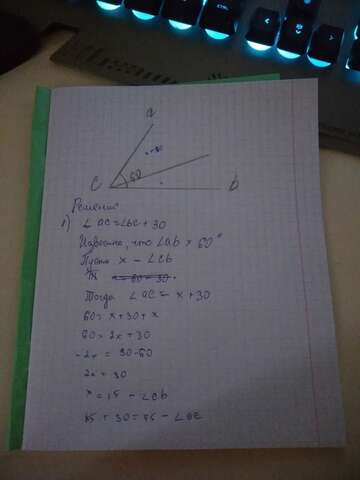 a
60
c
b
Решение
1) ∠ac=∠bc+30
Известно, что ∠ab = 60°
Пусть x - ∠cb
Тогда ∠ac = x+30
60= x+30+x
60= 2x+30
-2x = 30-60
2x = 30
x = 15 - ∠cb
15 + 30 = 45 - ∠ac